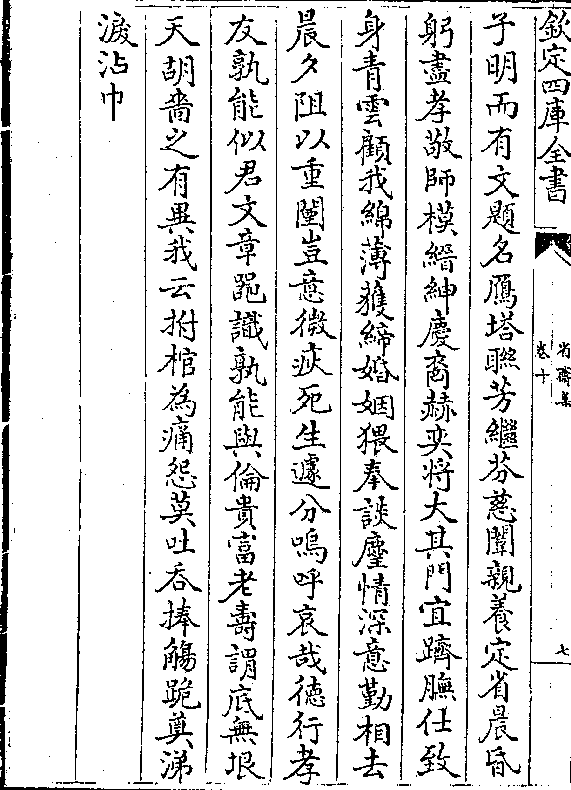 欽定四庫全書
省齋集
卷十
七
子明而有文題名鴈塔聯芳繼芬慈闈親養定省晨昏
躬盡孝敬師模縉紳慶裔赫奕將大其門宜躋膴仕致
身青雲顧我綿薄獲締婚姻猥奉談麈情深意勤相去
晨夕阻以重闉豈意微疢死生遽分嗚呼哀哉徳行孝
友孰能似君文章噐識孰能與倫貴富老壽謂底無垠
天胡嗇之有異我云拊棺為痛怨莫吐吞捧觴跪奠涕
淚沾巾